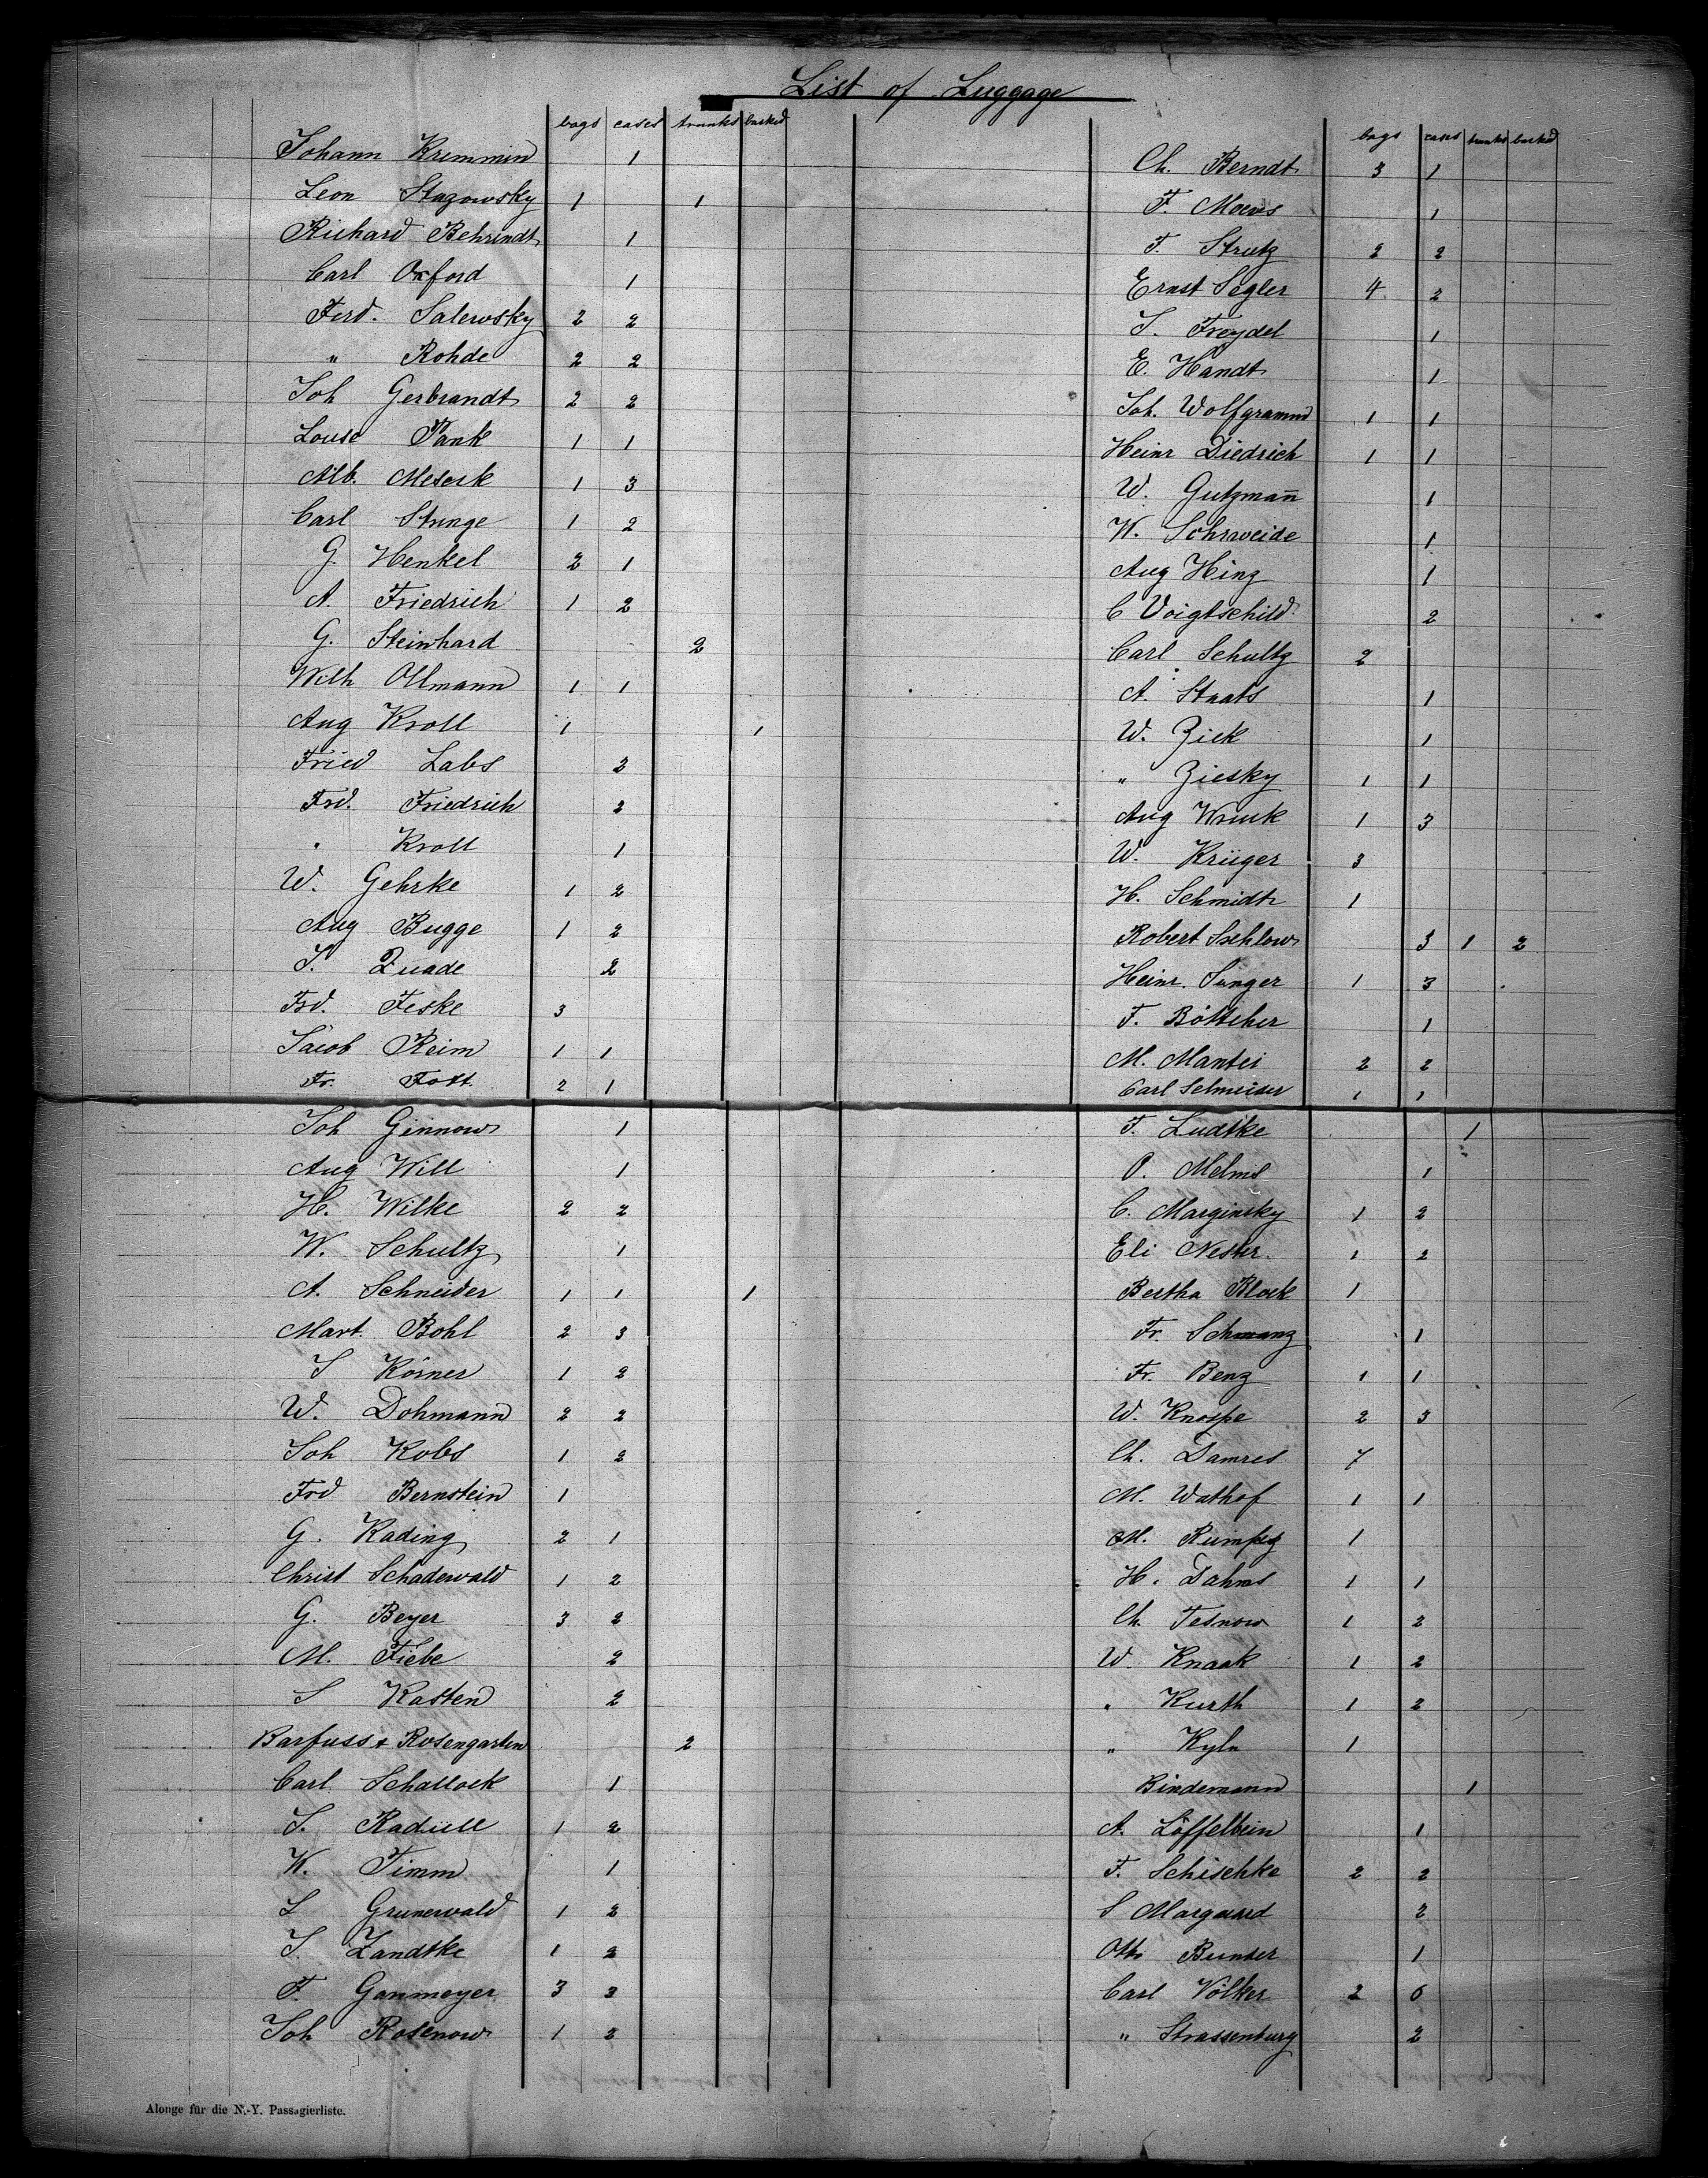 List of Luggage
bags cases trunks basked
Johann Kremmin 1
Leon Stagowsky 1 1
Richard Behrendt 1
Carl Oxford 1
Ferd. Salewsky 2 2
" Rohde 2 2
Joh Gerbrandt 2 2
Louse Pank 1 1
Alb. Meseck 1 3
Carl Stenge 1 2
G. Henkel 2 1
A. Friedrich 1 2
G. Steinhard 2
Wilh Ollmann 1 1
Aug Kroll 1 1
Fried Labs 2
Frd. Friedrich 2
" Kroll 1
W. Gehrke 1 2
Aug Bugge 1 2
J. Quade 2
Frd. Feske 3
Jacob Reim 1 1
Fr. Fott 2 1
Joh Ginnow 1
Aug Will 1
H. Wilke 2 2
W. Schultz 1
A. Schneider 1 1 1
Mart. Bohl 2 3
J Körner 1 2
W. Dohmann 2 2
Joh Kobs 1 2
Frd Bernstein 1
G. Kading 2 1
Christ Schadewald 1 2
G. Beyer 3 2
M. Fiebe 2
J Kasten 2
Barfuss & Rosengarten 2
Carl Schallock 1
J. Radull 1 2
W. Timm 1
L Grunerwald 1 2
J. Zandtke 1 2
F. Ganmeyer 3 3
Joh Rosenow 1 2
bags cases trunks basked
Ch. Berndt 3 1
F. Moews 1
F. Strutz 2 2
Ernst Segler 4 2
J. Freydel 1
E. Handt 1
Joh. Wolfgramm 1 1
Heinr Diedrich 1 1
W. Gutzmañ 1
W. Schrweide 1
Aug Hinz 1
C Voigtschild 2
Carl Schultz 2
A. Staats 1
W. Zick 1
" Ziesky 1 1
Aug Wruck 1 3
W. Krüger 3
H. Schmidt 1
Robert Sehlow 3 1 2
Heinr. Sünger 1 3
F. Böttcher 1
M. Mantei 2 2
Carl Schneider 1 1
F. Ludtke 1
O. Melms 1
C. Marginsky 1 2
Eli Nester 1 2
Bertha Block 1
Fr. Schwanz 1
Fr. Benz 1 1
W. Knospe 2 3
Ch. Damres 7
M. Wathof 1 1
M. 1
H. Dahms 1 1
Ch. Tesnow 1 2
W. Knaak 1 2
" Kurth 1 2
" Kyln 1
Bindemann 1
A. Löffelbein 1
F. Schischke 2 2
J Margaard 2
Otto Bunser 1
Carl Völker 2 6
" Strassenburg 2
Alonge für die N.-Y. Passagierliste.